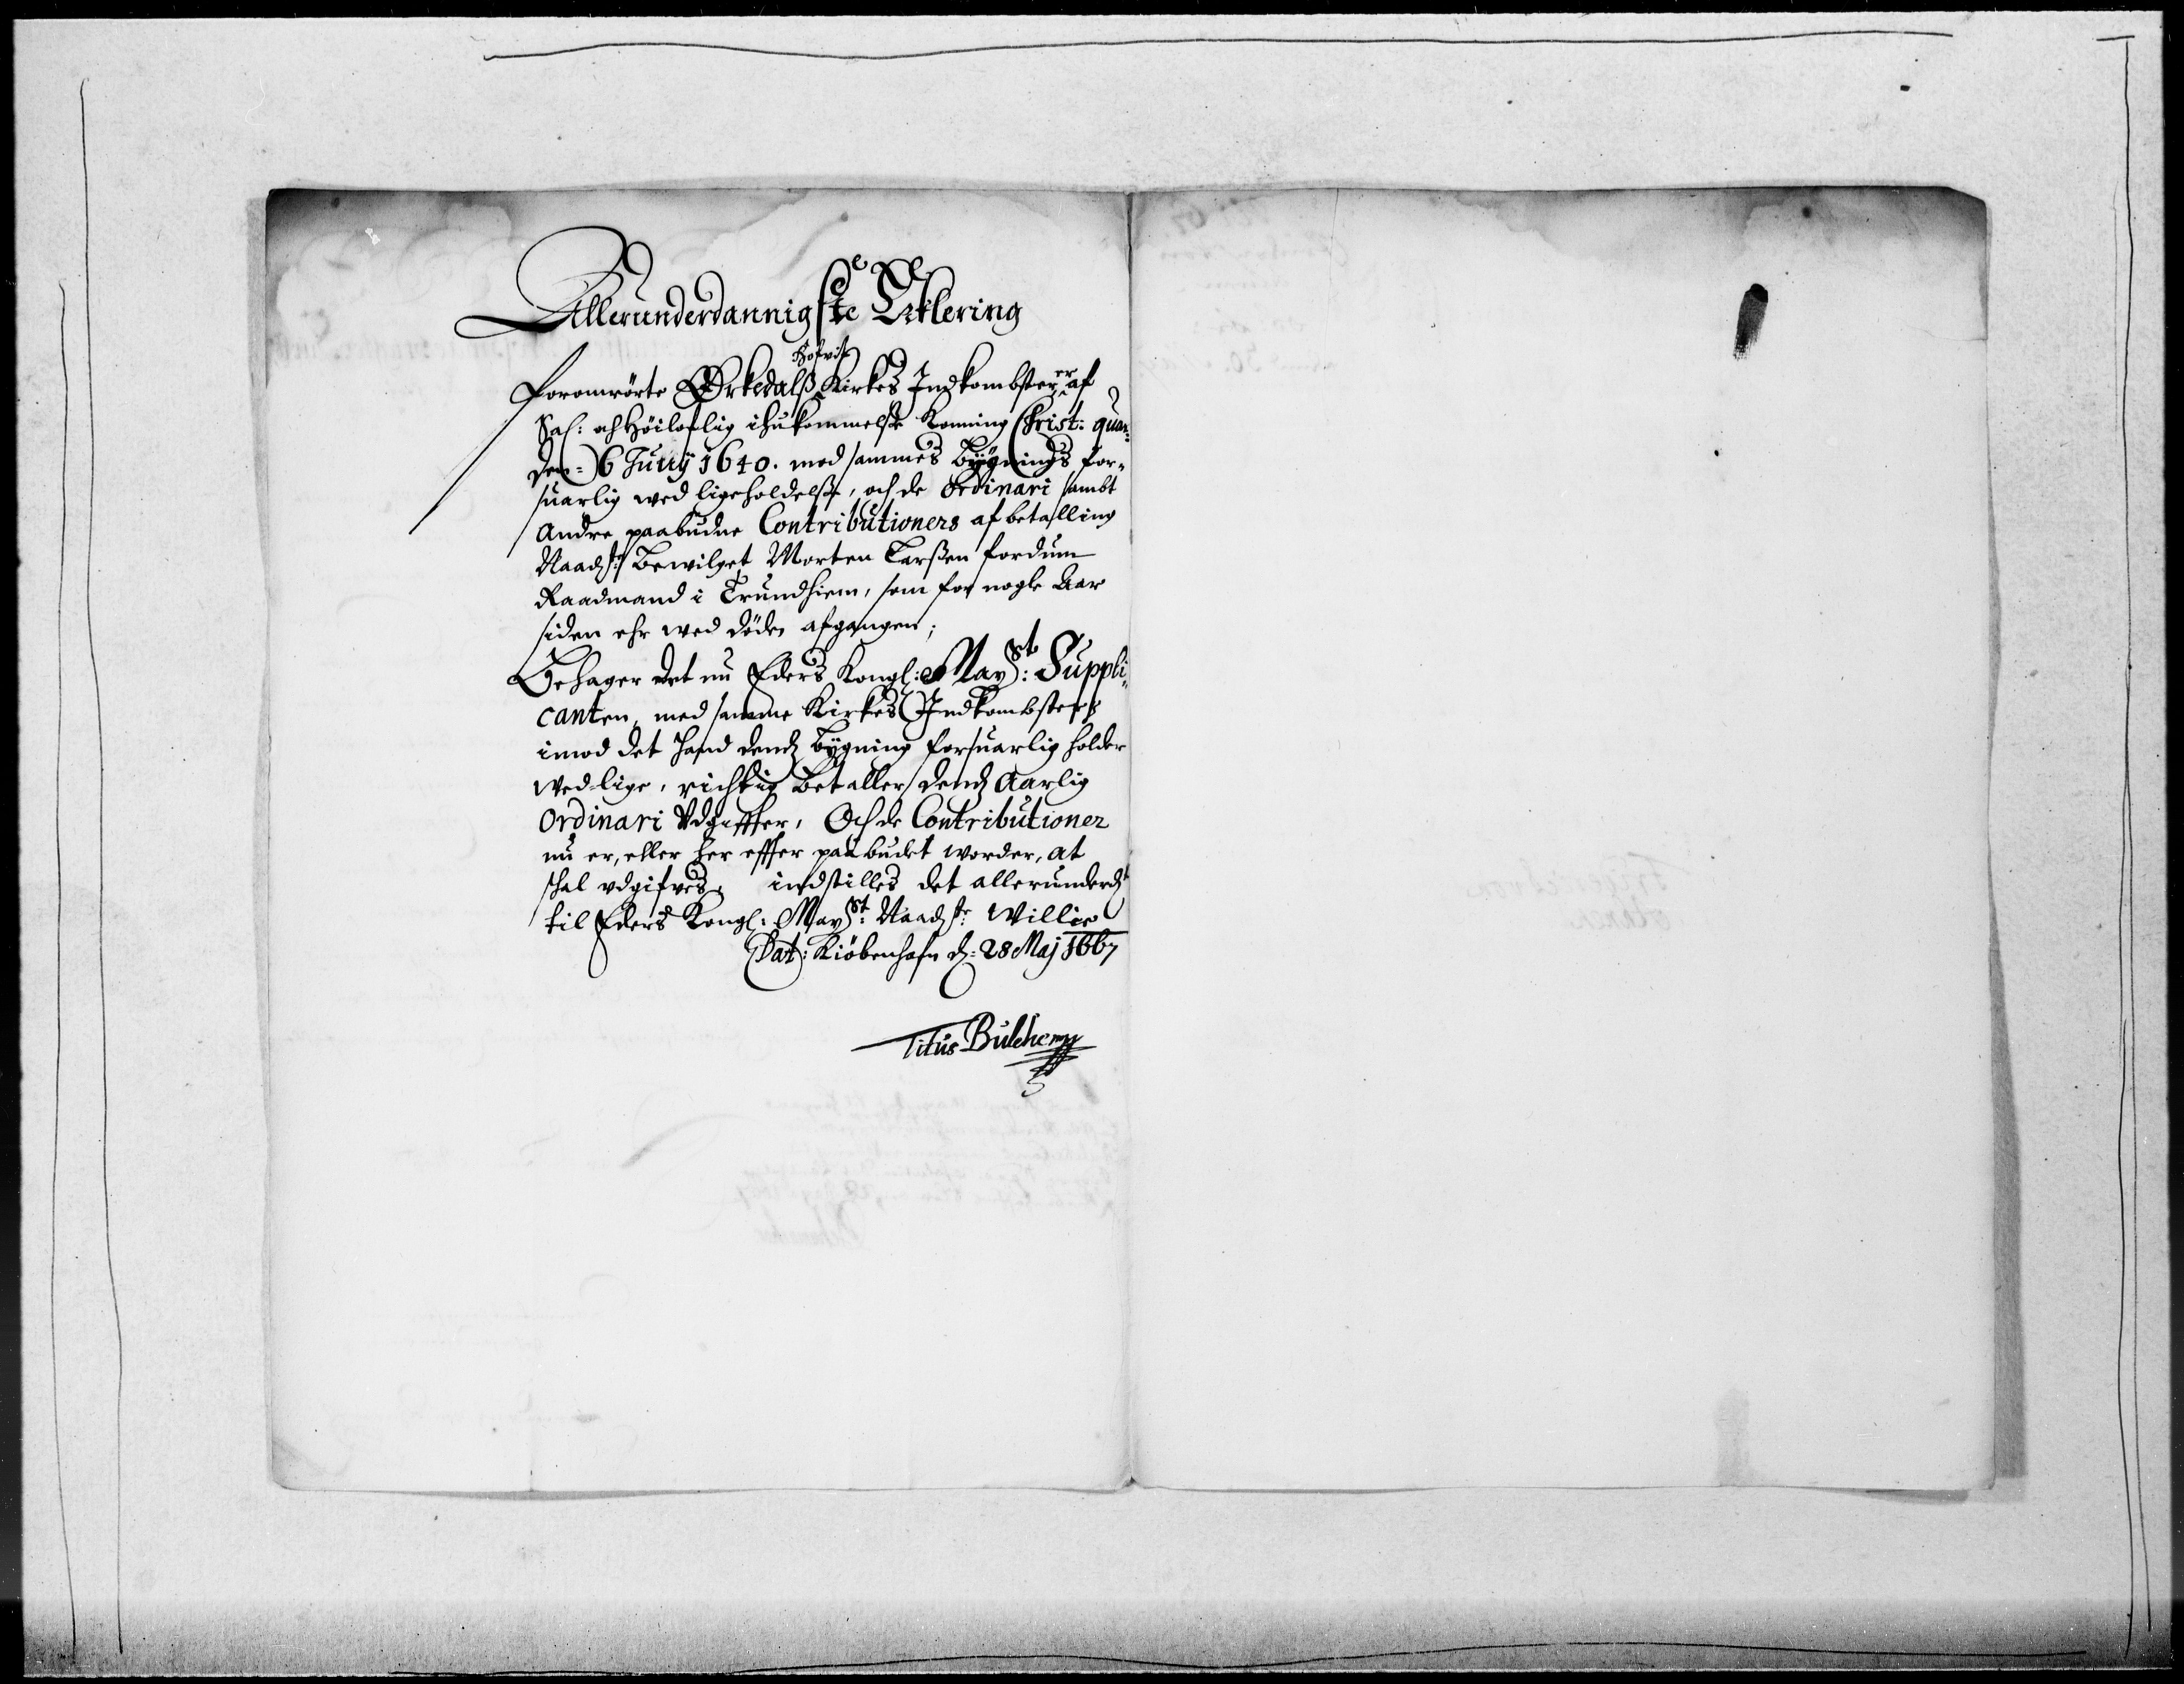 Allerunderdannigste Erklering
Foromrörte Ørkedalß Hofvit Kirkes Indkombster, er af
Sal: och Höiloflig ihukommelse Konning Christ: quar=
den= 6 Junij 1640. mod sammes Bÿgnings for=
suarlig wed ligeholdelße, och de Ordinari sambt
Andre paabudne Contributioners afbetalling
Naad:ste Bewilget Morten Larßen fordum
Raadmand i Trundhiem, som for nogle Aar
siden ehr wed döden afgangen;
Behager det nu Eders Kongl: May:st Suppli=
canten, med samme Kirkes Indkombster
imod det hand dends Bÿgning forsuarlig holder
wed lige, richtig Betaller dends Aarlig
Ordinari Vdgiffter, Och de Contributioner
nu er, eller her effter paabudet worder, at
skal vdgifves, indstilles det allerunderdt
til Eders Kongl: May:st Naad:ste Willie
Dat: Kiöbenhafn d: 28 Maj 1667
Titus Bulche